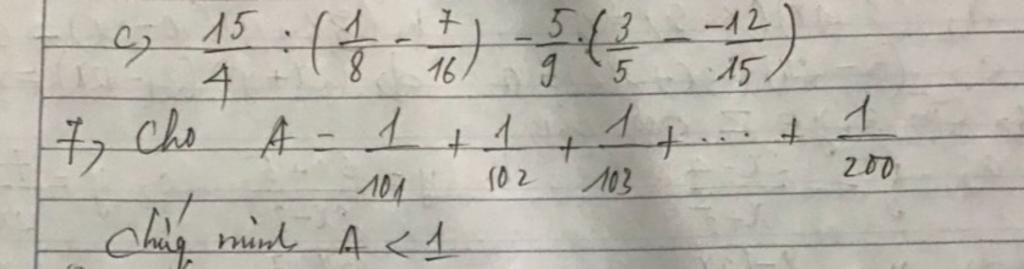 c, 15/4 : (1/8 - 7/16) - 5/9 . (3/5 - -12/15)
7, Cho A = 1/101 + 1/102 + 1/103 + ... + 1/200
Chứng minh A < 1